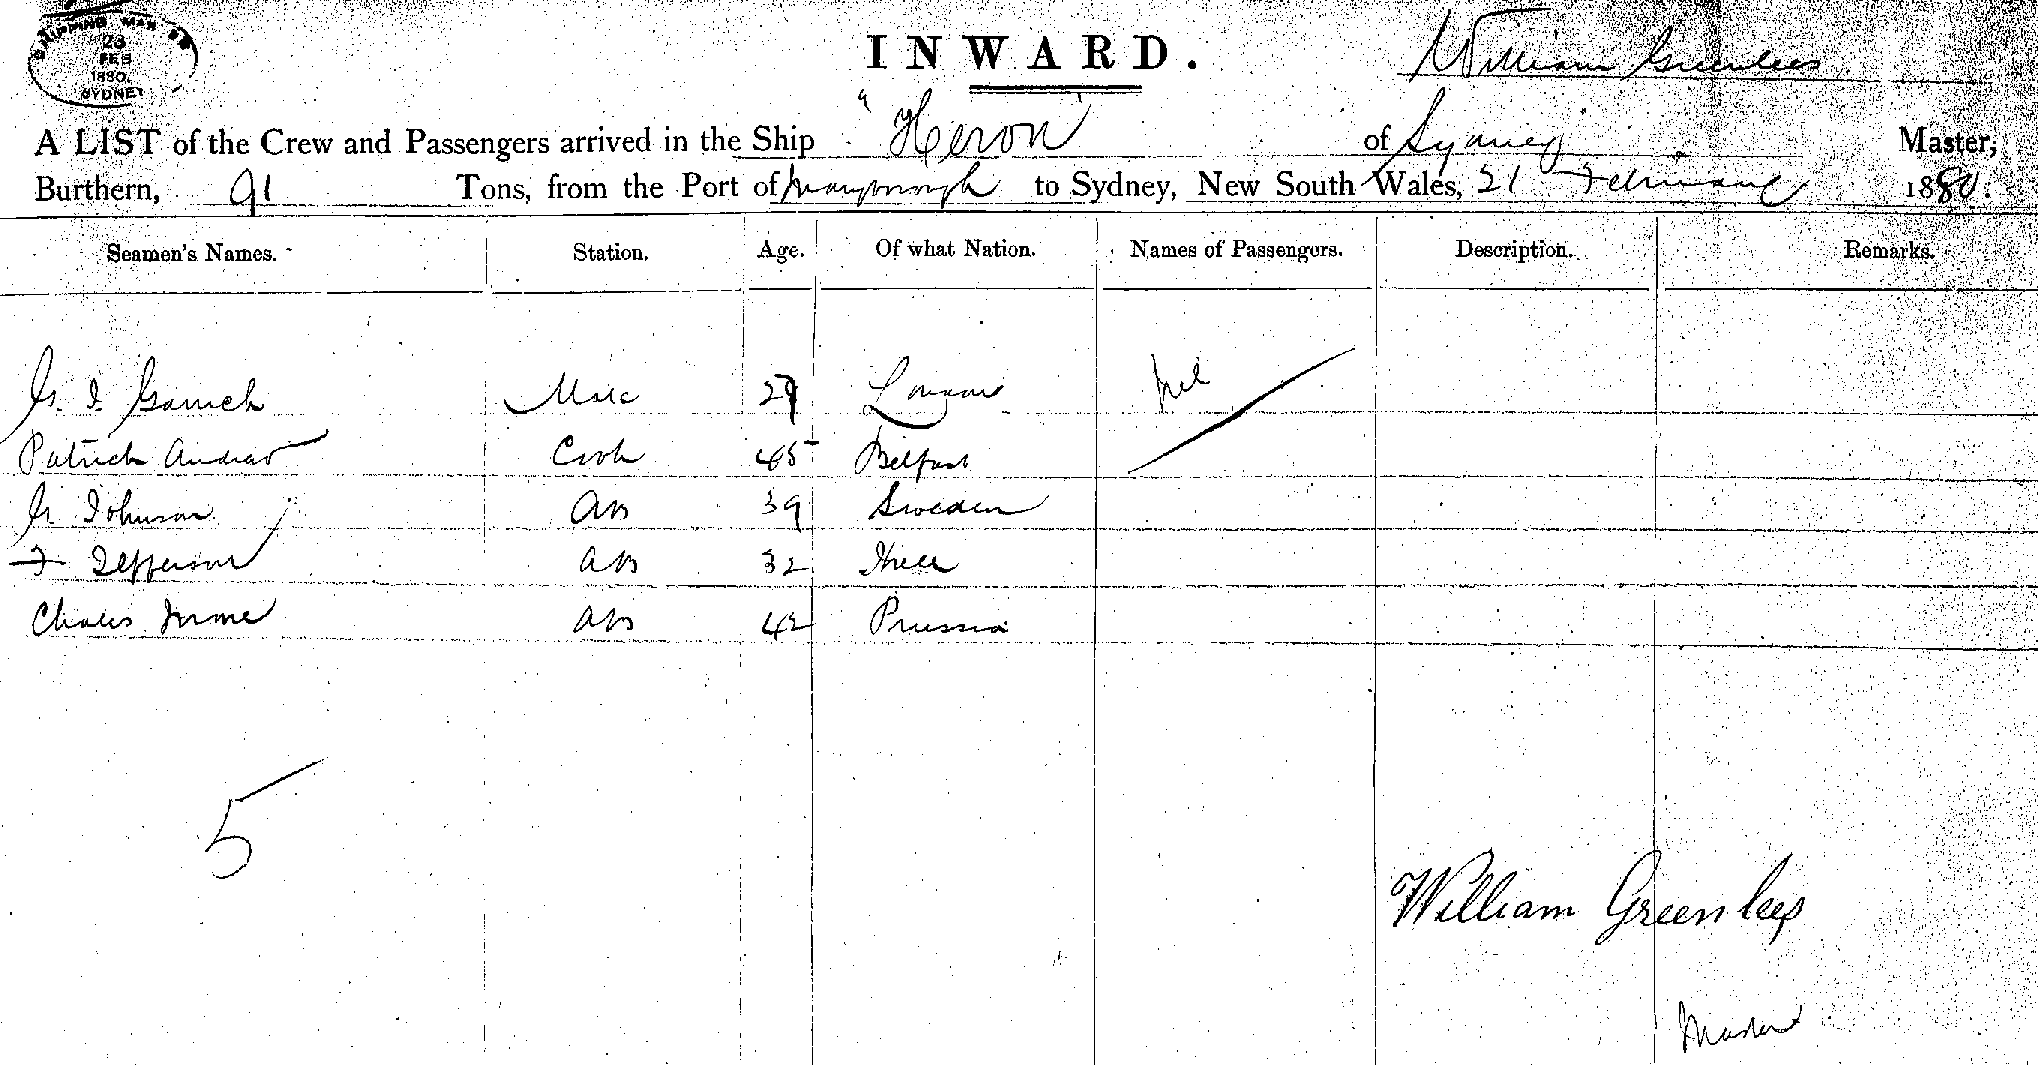 SHIPPING MAS
23
FEB
1880
SYDNEY
INWARD.
William Greenlees
A LIST of the Crew and Passengers arrived in the Ship "Heron" of Sydney Master,
Burthern, 91 Tons, from the Port of Maryborough to Sydney, New South Wales, 21 February 1880.
Seamen's Names. Station. Age. Of what Nation. Names of Passengers. Description. Remarks.
Mate 29 London Nil
Patrick Cook 45 Belfast
Johnson AB 39 Sweden
F Jefferson AB 32 Hull
AB 42 Prussia
5
William Greenlees
Master